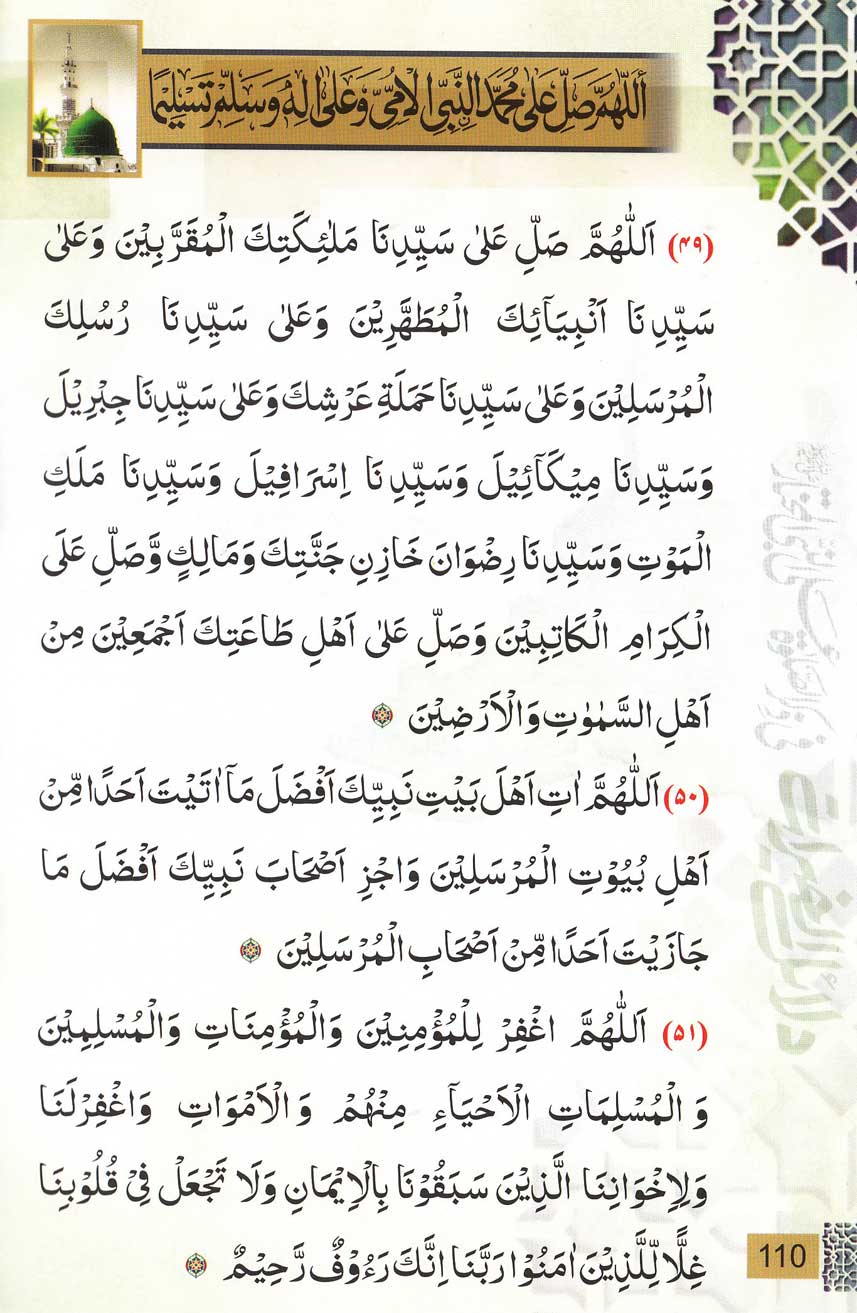 اَللّٰهُمَّ صَلِّ عَلٰى مُحَمَّدِ النَّبِيِّ الْاُمِّيِّ وَعَلٰى اٰلِهٖ وَسَلِّمْ تَسْلِيْمًا
(۴۹) اَللّٰهُمَّ صَلِّ عَلٰى سَيِّدِنَا مَلٰٓئِكَتِكَ الْمُقَرَّبِيْنَ وَعَلٰى
سَيِّدِنَا اَنْبِيَآئِكَ الْمُطَهَّرِيْنَ وَعَلٰى سَيِّدِنَا رُسُلِكَ
الْمُرْسَلِيْنَ وَعَلٰى سَيِّدِنَا حَمَلَةِ عَرْشِكَ وَعَلٰى سَيِّدِنَا جِبْرِيْلَ
وَسَيِّدِنَا مِيْكَآئِيْلَ وَسَيِّدِنَا اِسْرَافِيْلَ وَسَيِّدِنَا مَلَكِ
الْمَوْتِ وَسَيِّدِنَا رِضْوَانَ خَازِنِ جَنَّتِكَ وَمَالِكٍ وَّصَلِّ عَلَى
الْكِرَامِ الْكَاتِبِيْنَ وَصَلِّ عَلٰى اَهْلِ طَاعَتِكَ اَجْمَعِيْنَ مِنْ
اَهْلِ السَّمٰوٰتِ وَالْاَرْضِيْنَ
(۵۰) اَللّٰهُمَّ اٰتِ اَهْلَ بَيْتِ نَبِيِّكَ اَفْضَلَ مَآ اٰتَيْتَ اَحَدًا مِّنْ
اَهْلِ بُيُوْتِ الْمُرْسَلِيْنَ وَاجْزِ اَصْحَابَ نَبِيِّكَ اَفْضَلَ مَا
جَازَيْتَ اَحَدًا مِّنْ اَصْحَابِ الْمُرْسَلِيْنَ
(۵۱) اَللّٰهُمَّ اغْفِرْ لِلْمُؤْمِنِيْنَ وَالْمُؤْمِنَاتِ وَالْمُسْلِمِيْنَ
وَالْمُسْلِمَاتِ الْاَحْيَآءِ مِنْهُمْ وَالْاَمْوَاتِ وَاغْفِرْلَنَا
وَلِاِخْوَانِنَا الَّذِيْنَ سَبَقُوْنَا بِالْاِيْمَانِ وَلَا تَجْعَلْ فِيْ قُلُوْبِنَا
غِلًّا لِّلَّذِيْنَ اٰمَنُوْا رَبَّنَا اِنَّكَ رَءُوْفٌ رَّحِيْمٌ
دلائل الخیرات
110